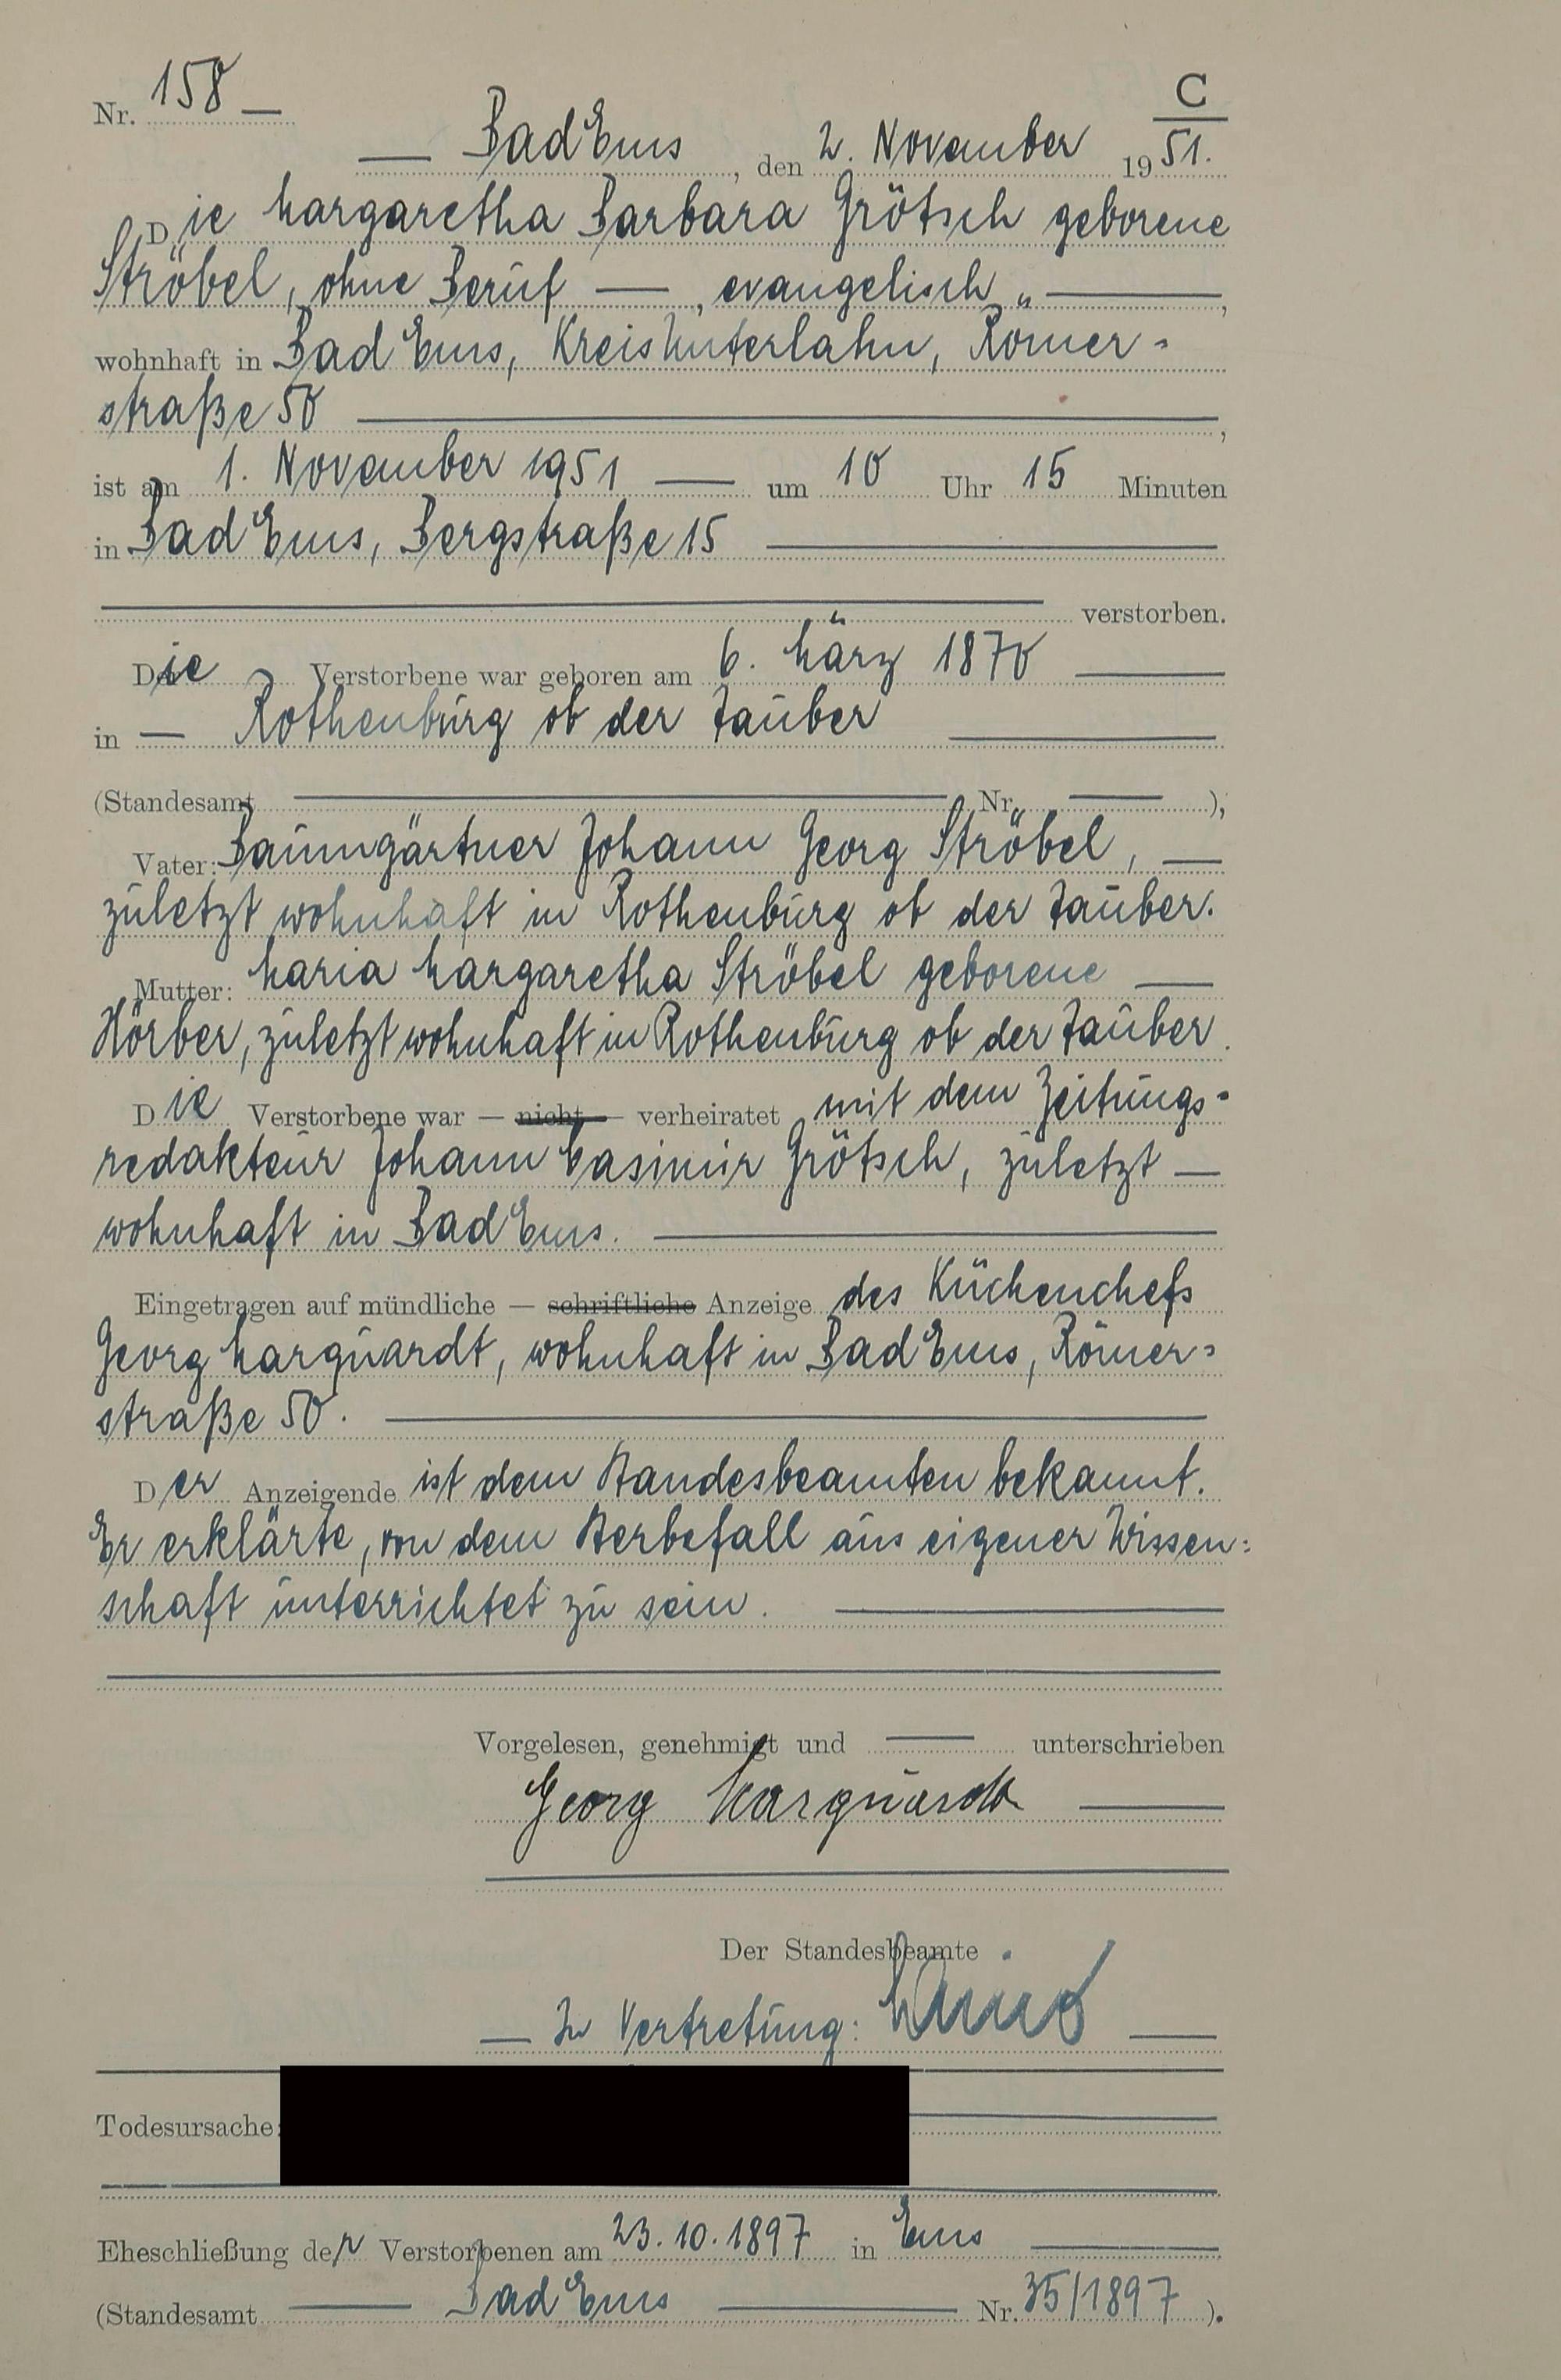 Nr. 158 —
C
— Bad Ems, den 2. November 19 51.
Die Margaretha Barbara Grötsch geborene
Ströbel, ohne Beruf —, evangelisch „ —,
wohnhaft in Bad Ems, Kreis Unterlahn, Römer-
straße 50 —,
ist am 1. November 1951 — um 10 Uhr 15 Minuten
in Bad Ems, Bergstraße 15 —
— verstorben.
Die Verstorbene war geboren am 6. März 1870 —
in — Rothenburg ob der Tauber —
(Standesamt — Nr. — ),
Vater: Baumgärtner Johann Georg Ströbel, —
zuletzt wohnhaft in Rothenburg ob der Tauber.
Mutter: Maria Margaretha Ströbel geborene —
Hörber, zuletzt wohnhaft in Rothenburg ob der Tauber.
Die Verstorbene war — nicht — verheiratet mit dem Zeitungs-
redakteur Johann Casimir Grötsch, zuletzt —
wohnhaft in Bad Ems. —
Eingetragen auf mündliche — schriftliche Anzeige des Küchenchefs
Georg Marquardt, wohnhaft in Bad Ems, Römer-
straße 50. —
Der Anzeigende ist dem Standesbeamten bekannt.
Er erklärte, von dem Sterbefall aus eigener Wissen-
schaft unterrichtet zu sein. —
Vorgelesen, genehmigt und — unterschrieben
Georg Marquardt —
Der Standesbeamte
— In Vertretung: —
Todesursache:
Eheschließung der Verstorbenen am 23.10.1897 in Ems —
(Standesamt — Bad Ems — Nr. 35/1897 ).